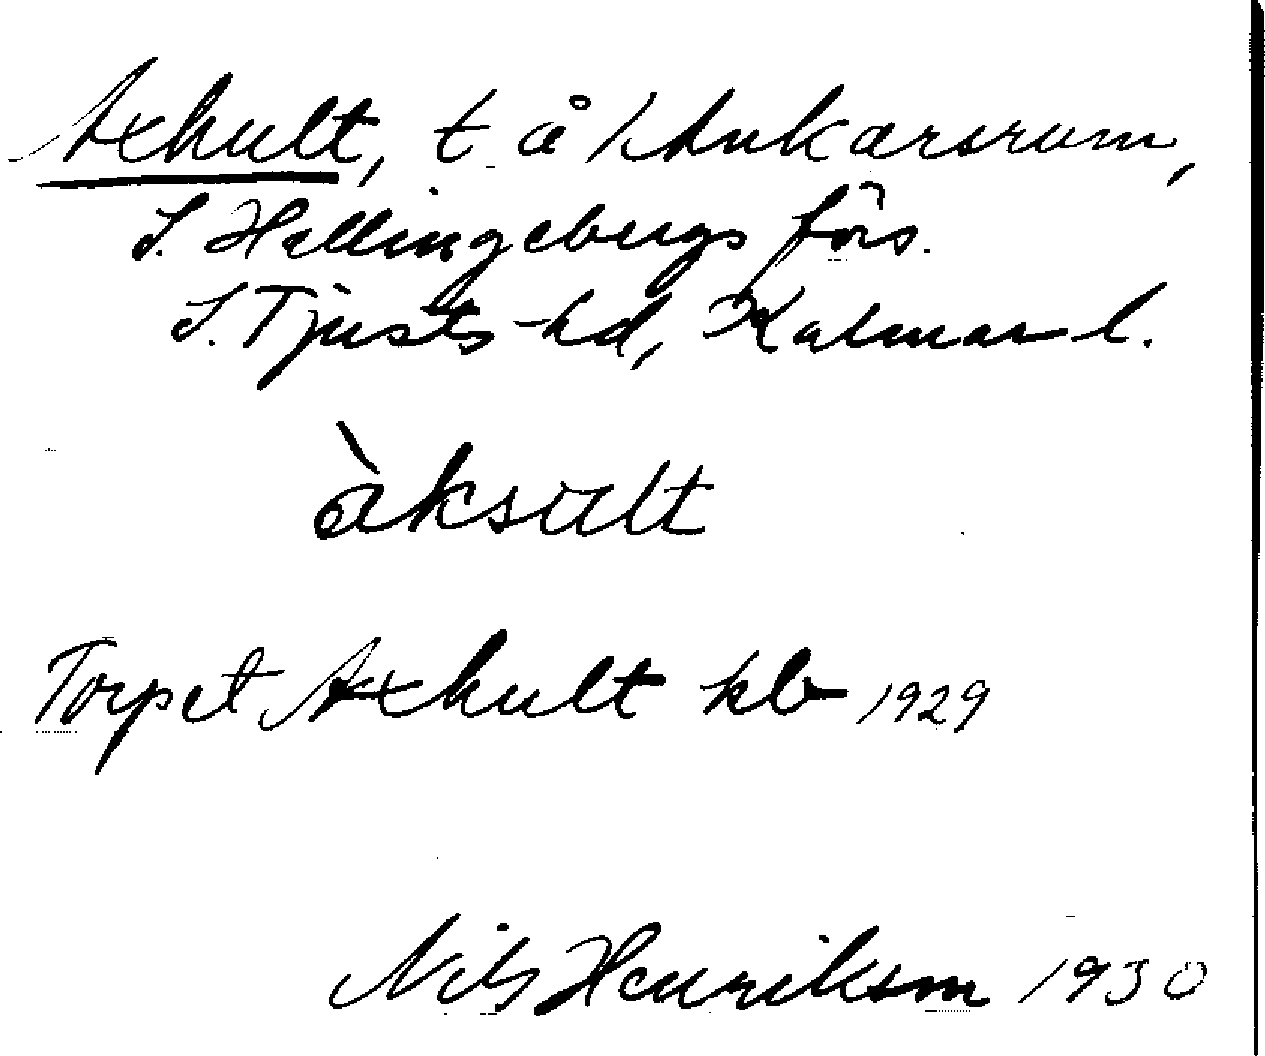 Axhult, t å 1 Ankarsrum,
S. Hallingebergs förs.
S. Tjusts hd, Kalmar l.
àksult
Torpet Axhult kb 1929
Nils Henrikson 1930